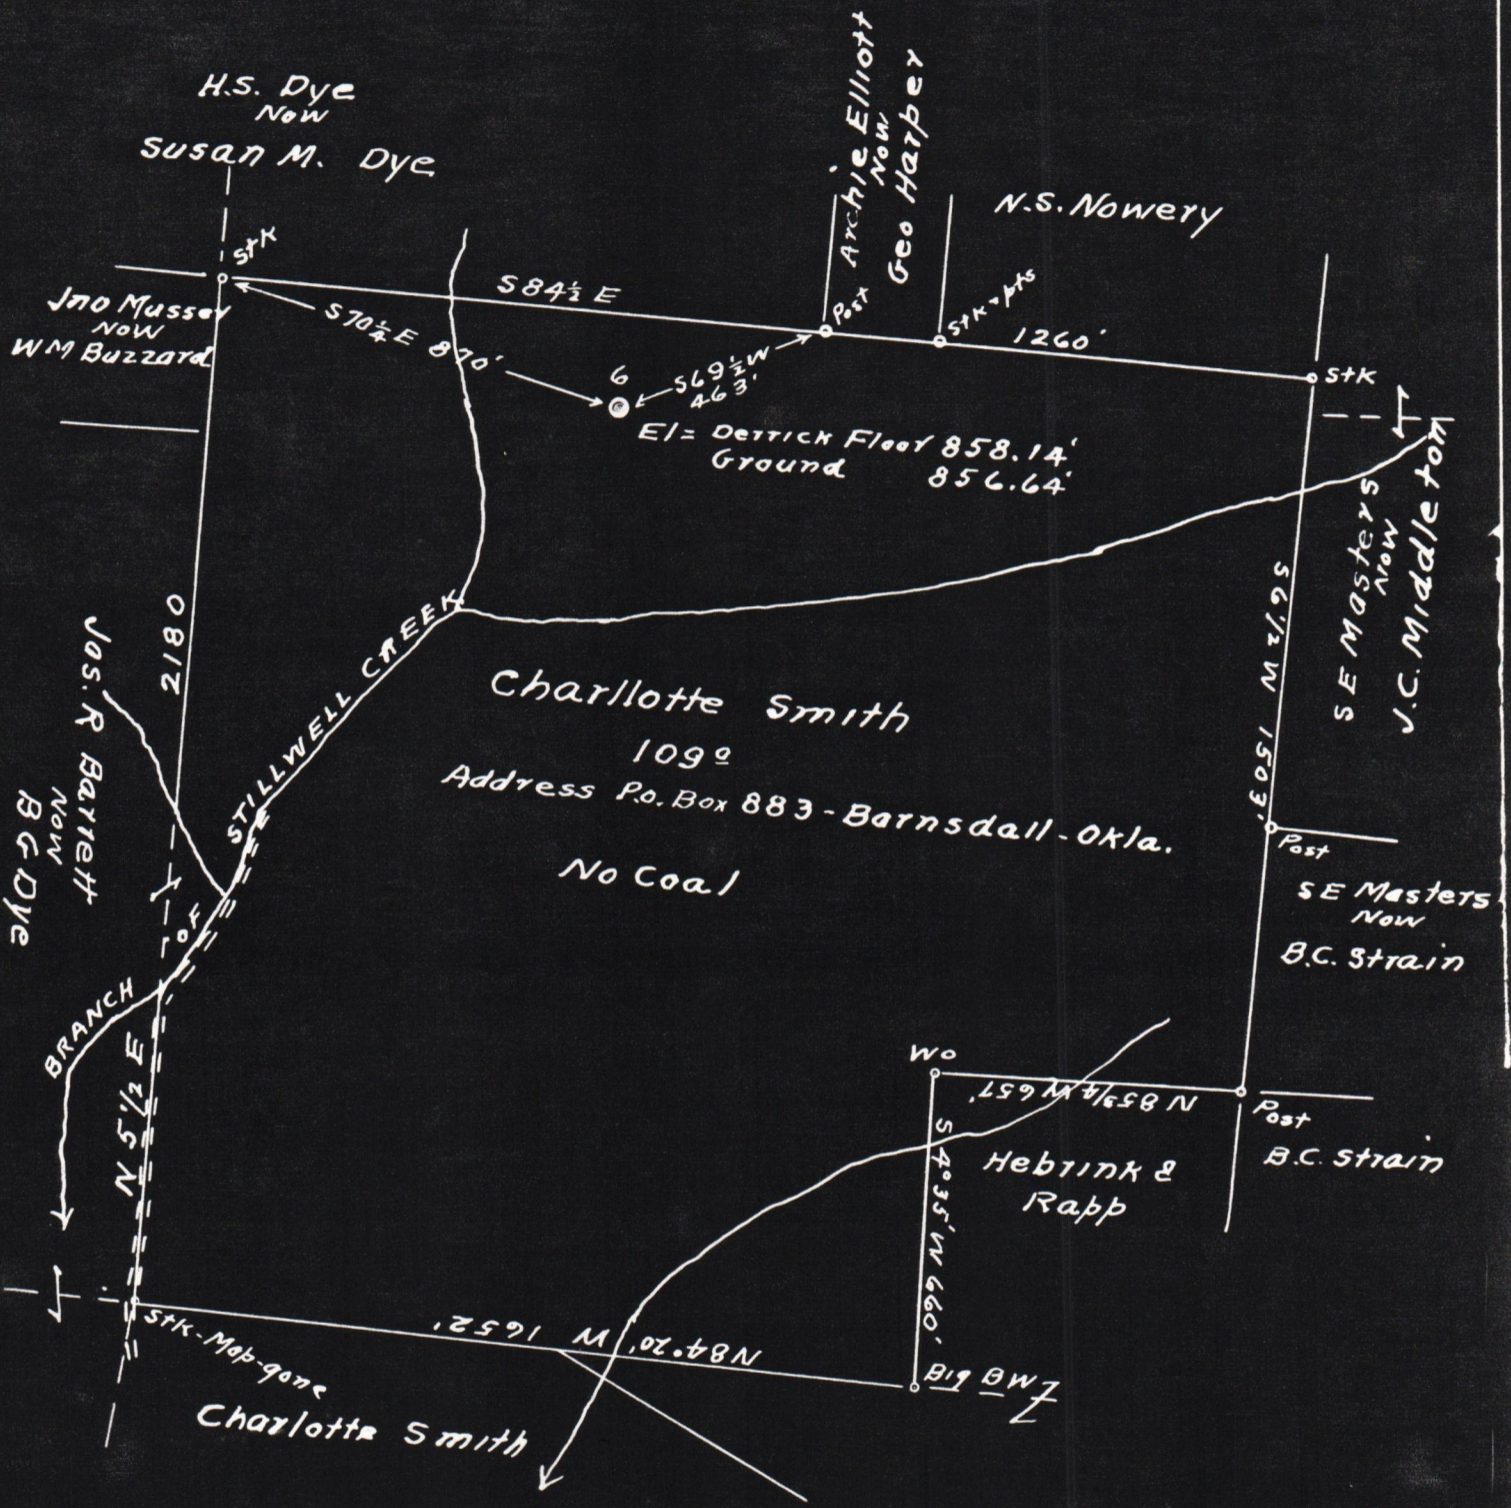 H.S. Dye
Now
Susan M. Dye
Archie Elliott
Now
Geo Harper
N.S. Nowery
Stk
S84½ E
Post
Stk & pts
1260'
Stk
Jno Musser
Now
WM Buzzard
S70¼ E 870'
6
S69½ W
463'
El = Derrick Floor 858.14'
Ground 856.64'
S E Masters
Now
J.C. Middleton
S6½ W 1503'
2180
Jas. R Barrett
Now
B G Dye
STILLWELL CREEK
Charllotte Smith
109 a
Address P.O. Box 883 - Barnsdall - Okla.
No Coal
Post
SE Masters
Now
B.C. Strain
F
BRANCH
N 5½ E
WO
N 85¾ W 657'
Post
B.C. Strain
S 4°35' W 660'
Hebrink &
Rapp
Stk-Mop-gone
N84°20' W 1652'
Big BW
Charlotte Smith